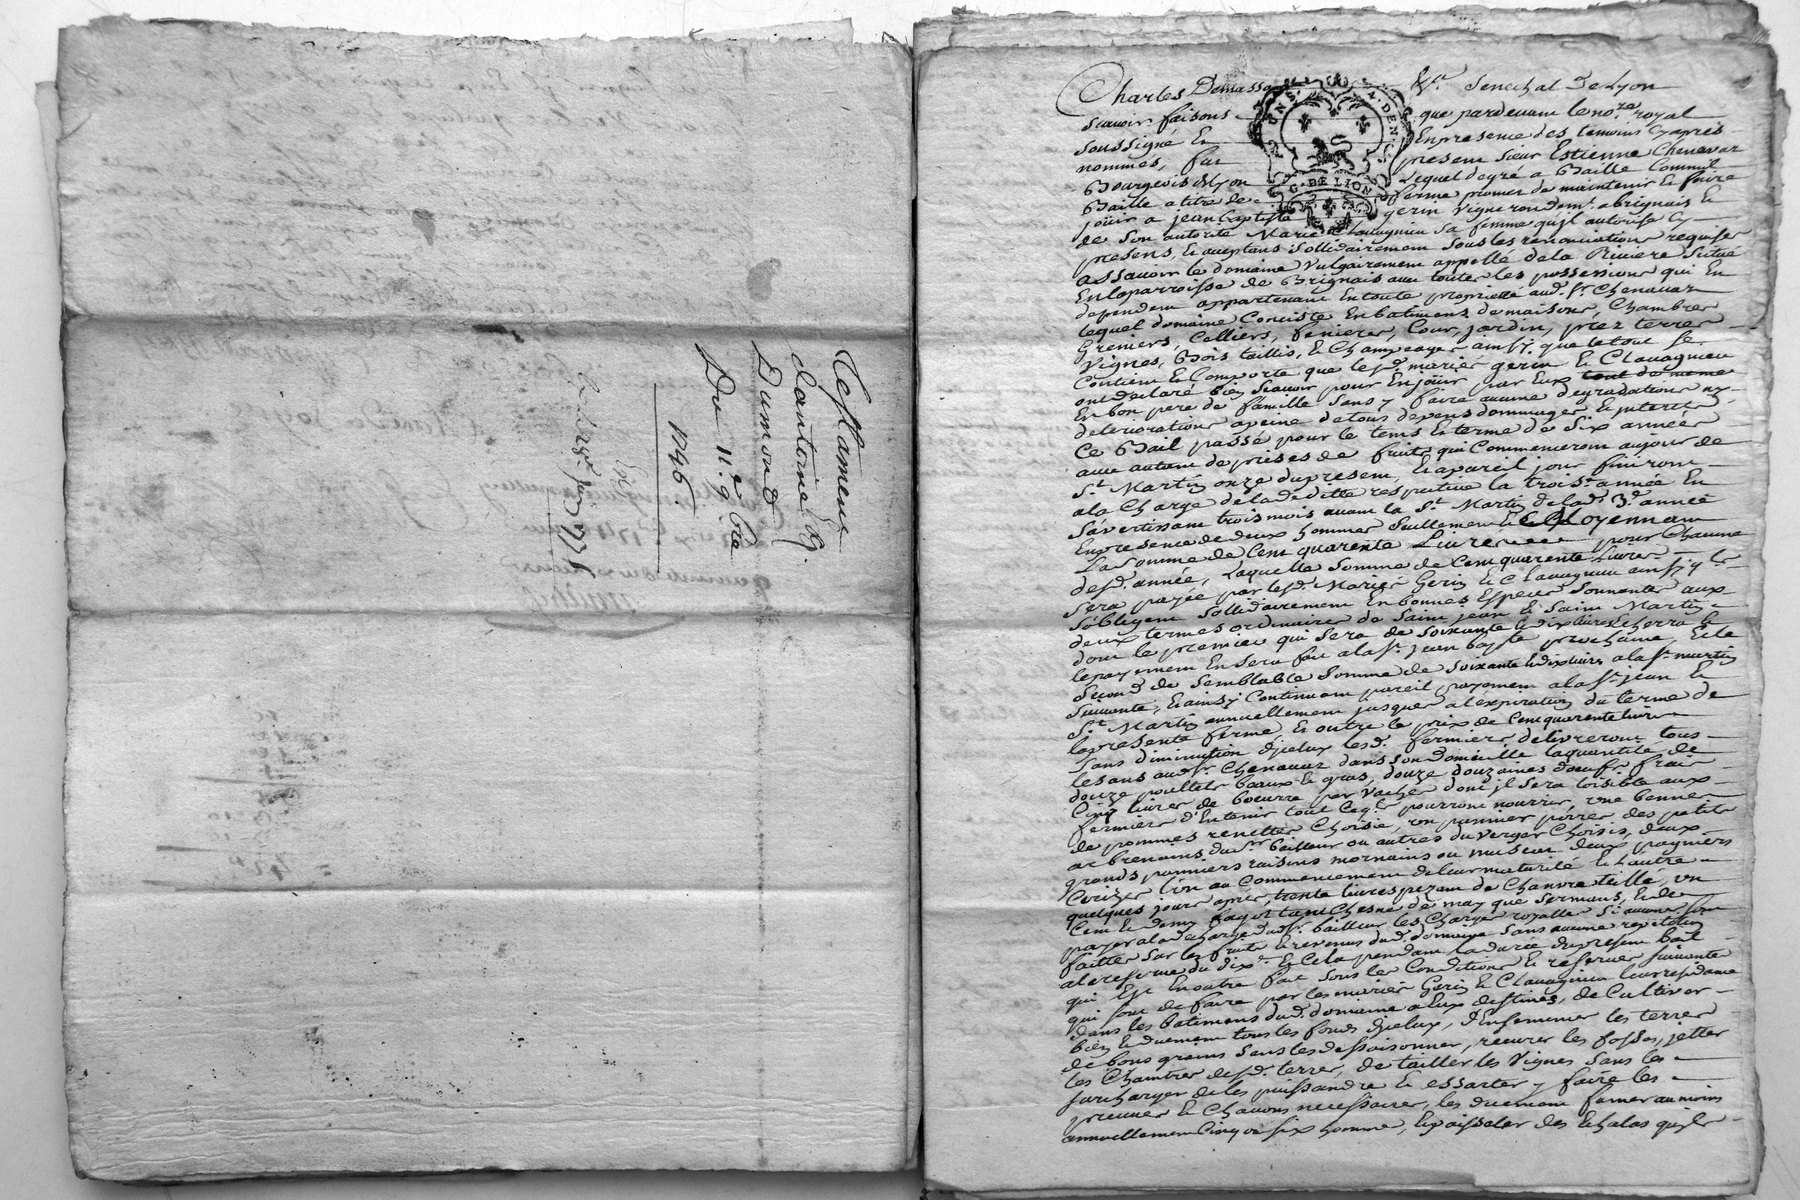 Testament
d'antoine
Dumond
Du 11.e 9bre
1746.
Charles Demasso Senechal De Lyon
scavoir faisons que pardevant le no.re royal
soussigné Et En presence des temoins cy apres
nommés, fut present sieur Estienne Chenavaz
Bourgeois de Lyon Lequel de gré a Baillé
Baille a titre de ferme promet de maintenir et faire
jouir a jean baptiste gerin vigneron dem.t a brignais Et
de son autorité Marie Clavagnieu sa femme qu'il autorise cy
presens, Et acceptans sollidairement sous les renonciations requises
assavoir le domaine vulgairement appellé de la Riviere scitué
En la parroisse de Brignais avec toutes les possessions qui En
dependent appartenant En toute proprieté aud. s.r Chenavaz
lequel domaine Conciste En batimens de maisons, Chambres
Greniers, Celliers, fenieres, Cour, jardin, prez terres
vignes, Bois taillis, Et Champeages ainsy que le tout se
Contient Et Comporte que les d. mariés gerin Et Clavagnieu
ont declaré bien scavoir pour En joüir par Eux tout de meme
En bon pere de famille sans y faire aucune degradation ny
deteriorations a peine de tous depens dommages Et interets
Ce Bail passé pour le tems Et terme de six années
avec autant de prises de fruits qui Commenceront au jour de
S.t Martin onze du present, Et a pareil jour finiront
a la Charge de la deditte respective la trois.e année En
s'avertissant trois mois avant la S.t Martin de lad. 3.e année
En presence de deux hommes seullement Moyennant
La somme de Cent quarente Livres pour Chaune
des d. année, Laquelle somme de Cent quarente livres
sera payée par les d. Mariés Gerin Et Clavagnieu ainsy qu'ils
s'obligent sollidairement En bonnes Especes sonnantes aux
deux termes ordinaires de Saint jean Et Saint Martin
dont le premier qui sera de soixante Et dix livres Echerra Et
le payement En sera fait a la S.t jean bap.te prochaine, Et le
second de semblable somme de soixante Et dix livres a la S.t martin
suivante, Et ainsy Continuant pareil payement a la S.t jean Et
S.t Martin annuellement jusques a l'expiration du terme de
la presente ferme Et outre le prix de Cent quarente livres
sans diminution d'jcelux les d. fermiers delivreront tous
les ans aud. s.r Chenavaz dans son domicille la quantité de
douze poullets beaux Et gras, douze douzaines d'oeufs frais
Cinq livres de boeurre par vaches dont jl sera loisible aux
fermiers d'Entenir tout Ceq.ls pourront nourrir, une benne
de pommes renettes Choisie, un pannier poires des petits
ou autres du verger Choisis, deux
grands panniers raisins mornains ou muscat deux panniers
Cerizes l'un au Commencement de leur maturité Et l'autre
quelques jours apres, trente livres pezant de Chanvre teillé, un
Cent Et demy fagot tant Chesne de may que sermans, Et de
payer a la decharge dud. s.r bailleur les Charges royalles si aucunes sont
faittes sur les fruits Et revenus dud. domaine sans aucune repetition
a la reserve du dix.e Et Cela pendant la durée du present bail
qui Est En outre fait sous les Conditions Et reserves suivantes
qui sont de faire par les mariés Gerin Et Clavagnieu leur residance
dans les batimens dud. domaine a Eux destinés, de Cultiver
bien Et duement tous les fonds d'jcelux, d'Ensemencer les terres
de bons grains sans les dessaisonner, recurer les fosses, jetter
les Chaintres des d. terres, de tailler les vignes sans les
surcharger de les puissandre Et essarter y faire les
preuves Et Chavons necessaires, les duement fumer au moins
annuellement Cinq ou six hommé, Et paisseler des Echalas qu'jls